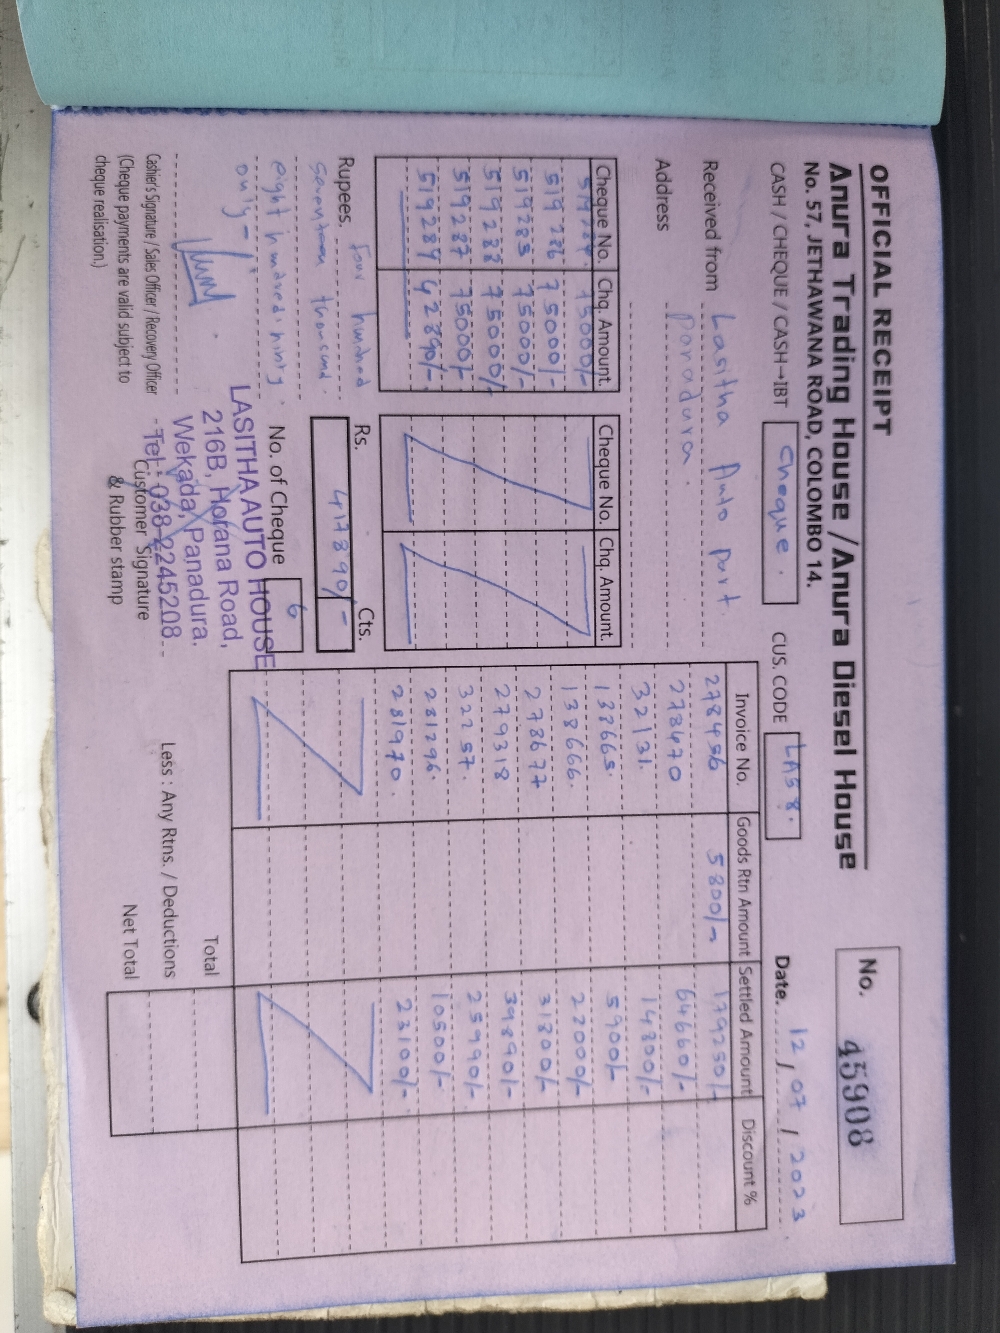 OFFICIAL RECEIPT
Anura Trading House / Anura Diesel House
No. 57, JETHAWANA ROAD, COLOMBO 14.
No. 45908
CASH / CHEQUE / CASH→IBT Cheque. CUS. CODE LAS 8. Date. 12 / 07 / 2023
Received from Lasitha Auto Part.
Address
Cheque No. Chq. Amount.
75000/-
519286 75000/-
519285 75000/-
519288 75000/-
519287 75000/-
519289 42890/-
Cheque No. Chq. Amount.
Rupees. Four hundred
Seventeen thousand
eight hundred ninty
only -/
Rs. Cts.
417890/-
No. of Cheque 6
LASITHA AUTO HOUSE
216B, Horana Road,
Wekada, Panadura.
Tel : 038-2245208
Cashier's Signature / Sales Officer / Recovery Officer
(Cheque payments are valid subject to
cheque realisation.)
Customer Signature
& Rubber stamp
Invoice No. Goods Rtn Amount Settled Amount Discount %
278456 5800/- 179250/-
278470 64660/-
32131. 14800/-
138665. 5900/-
138666. 22000/-
278677 31800/-
279318 39890/-
32257. 25990/-
281296. 10500/-
281970. 23100/-
Total
Less : Any Rtns. / Deductions
Net Total